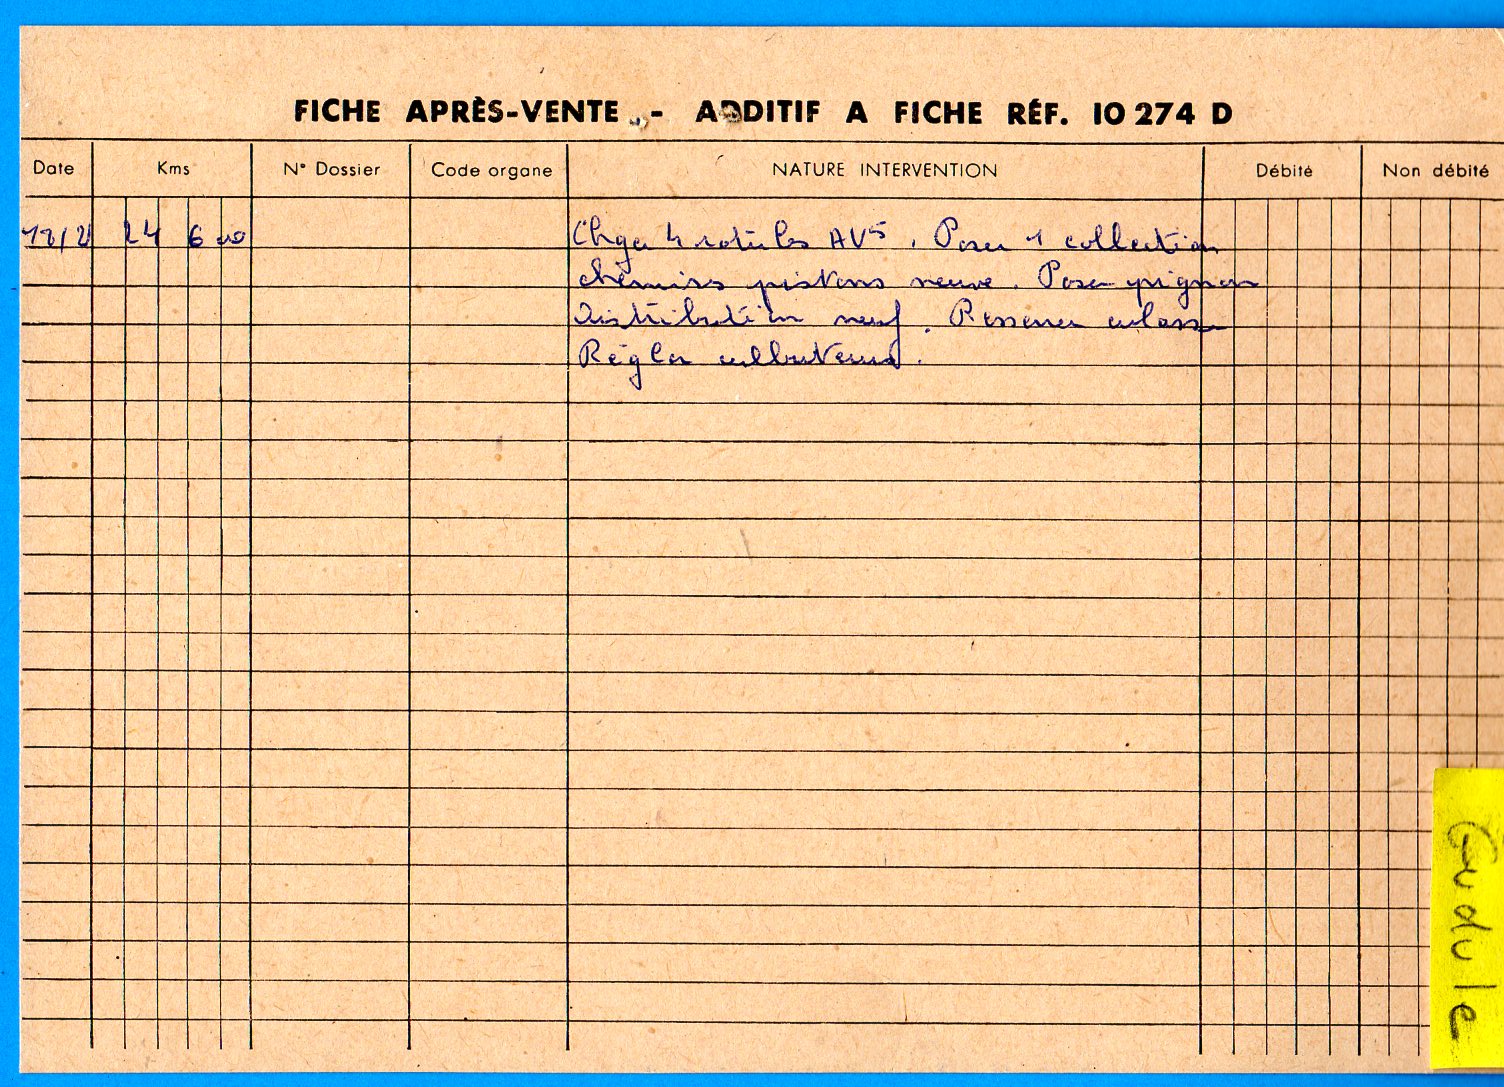 FICHE APRÈS-VENTE - ADDITIF A FICHE RÉF. 10 274 D
Date Kms N° Dossier Code organe NATURE INTERVENTION Débité Non débité
12/2 24 600 Chger 4 rotules AVS. Poser 1 collection
chemises pistons neuve. Poser pignon
distribution neuf. Resserrer culasse
Régler culbuteurs.
Gudule